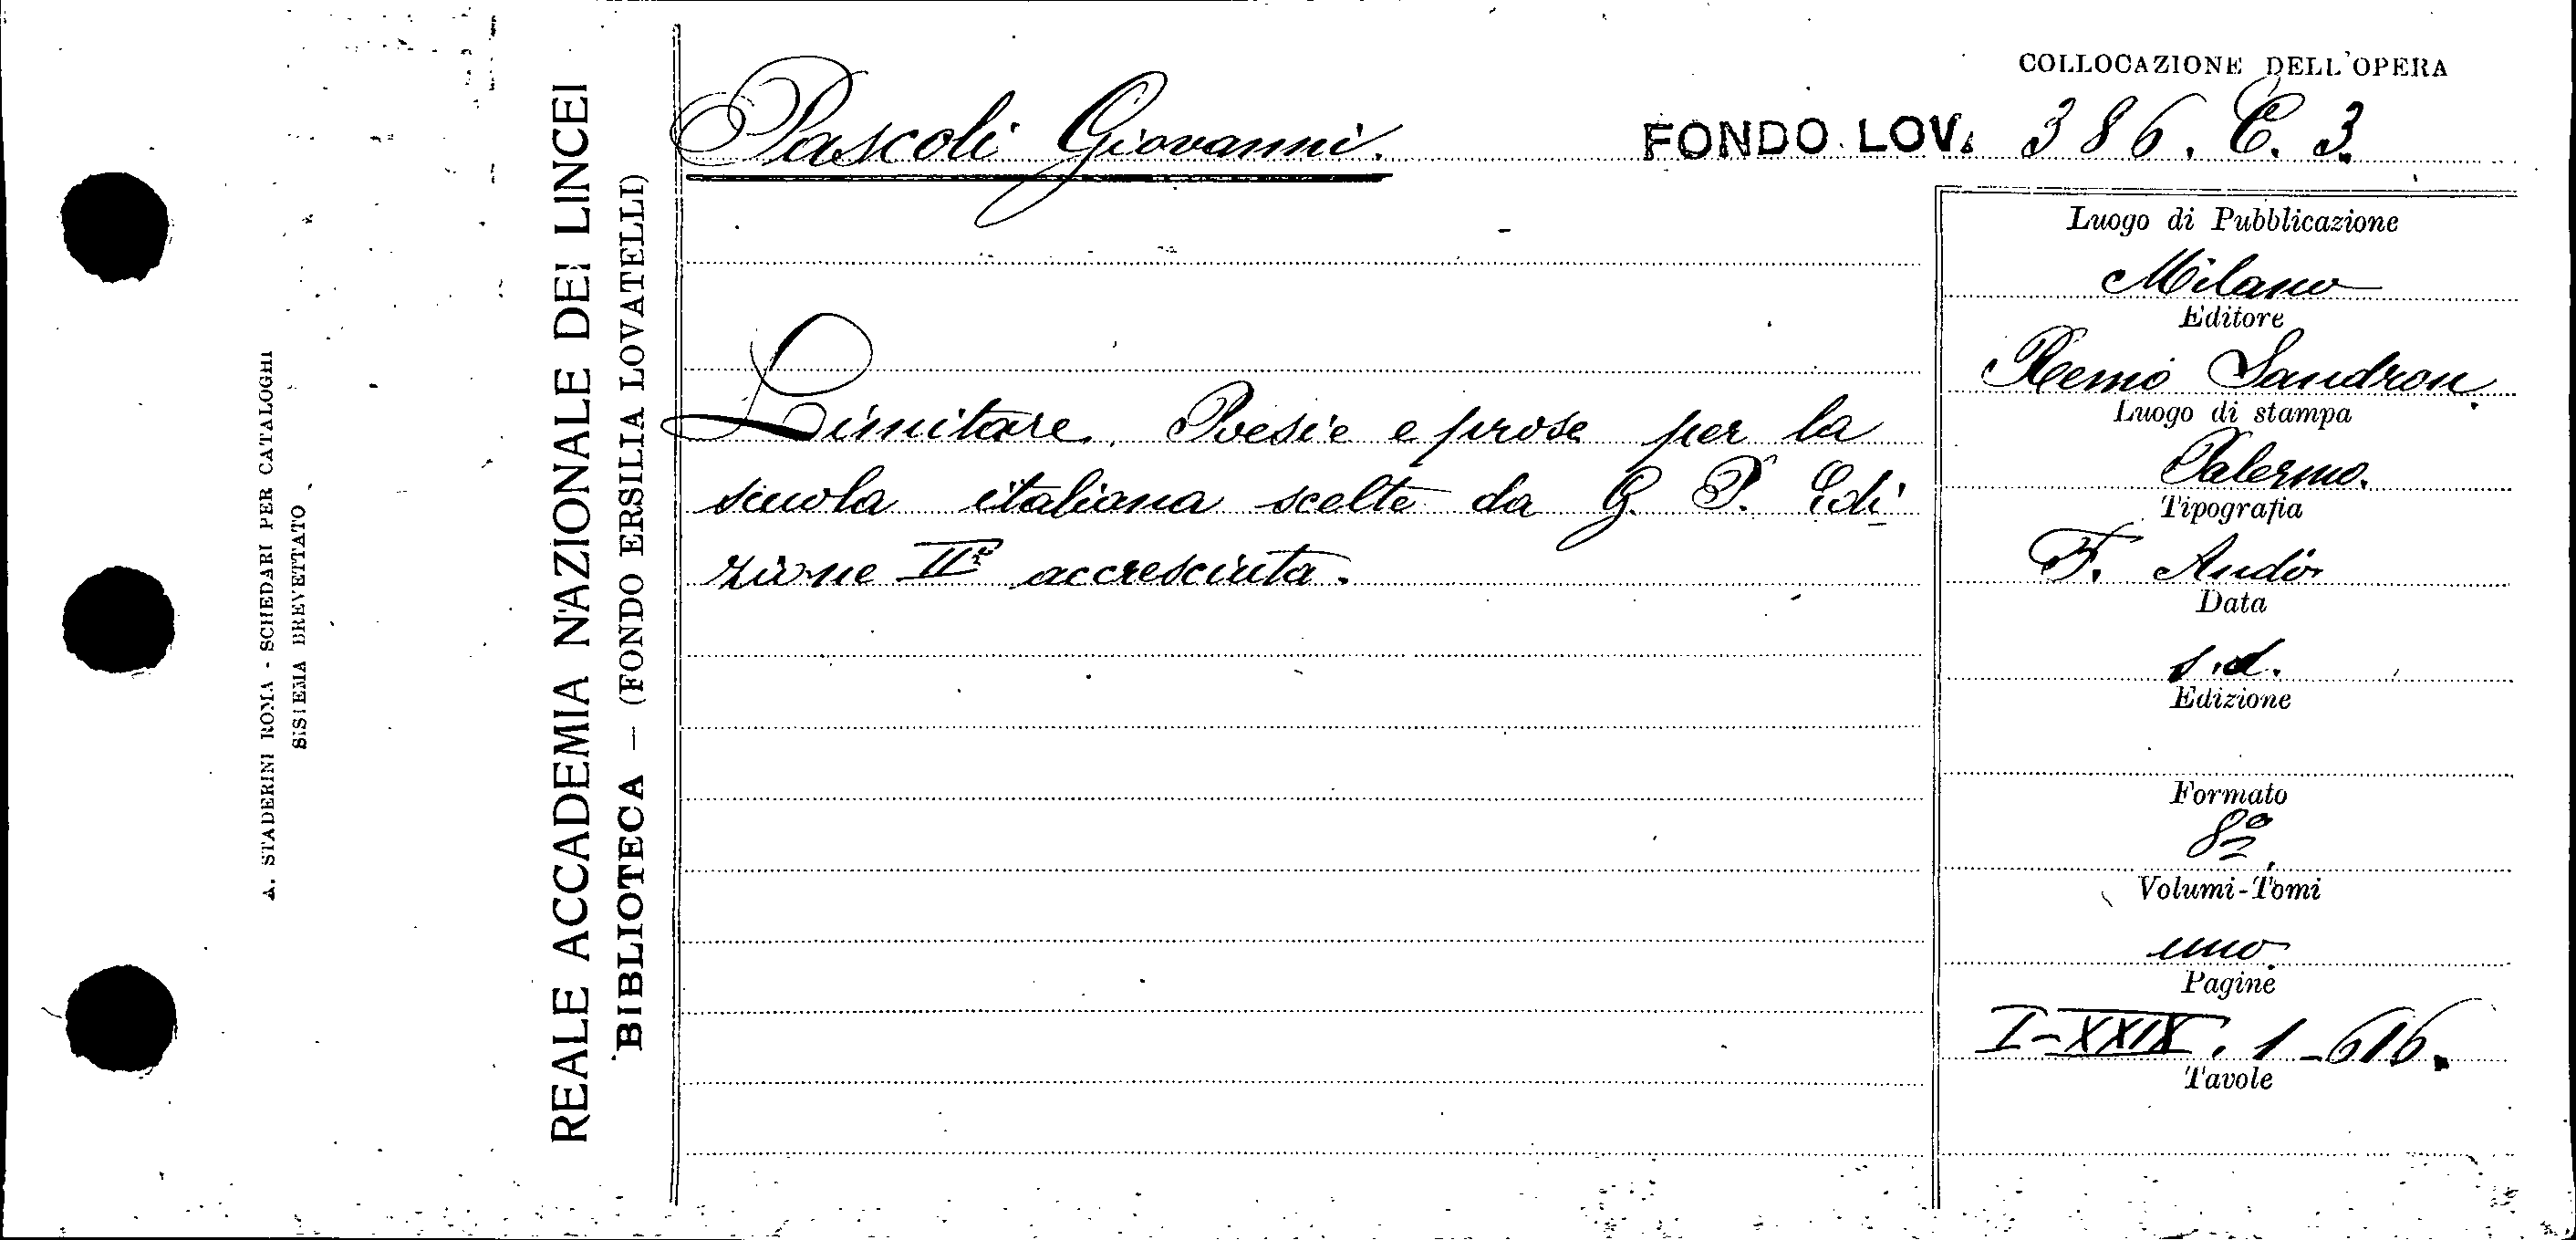 A. STADERINI ROMA - SCHEDARI PER CATALOGHI
SISTEMA BREVETTATO
REALE ACCADEMIA NAZIONALE DEI LINCEI
BIBLIOTECA — (FONDO ERSILIA LOVATELLI)
COLLOCAZIONE DELL'OPERA
Pascoli Giovanni. FONDO LOV. 386. C. 3.
Limitare. Poesie e prose per la
scuola italiana scelte da G. P. Edi
zione IIª accresciuta.
Luogo di Pubblicazione
Milano
Editore
Remo Sandron
Luogo di stampa
Palermo.
Tipografia
F. Andò
Data
s.d.
Edizione
Formato
8º
Volumi-Tomi
uno.
Pagine
I-XXIX. 1-616.
Tavole